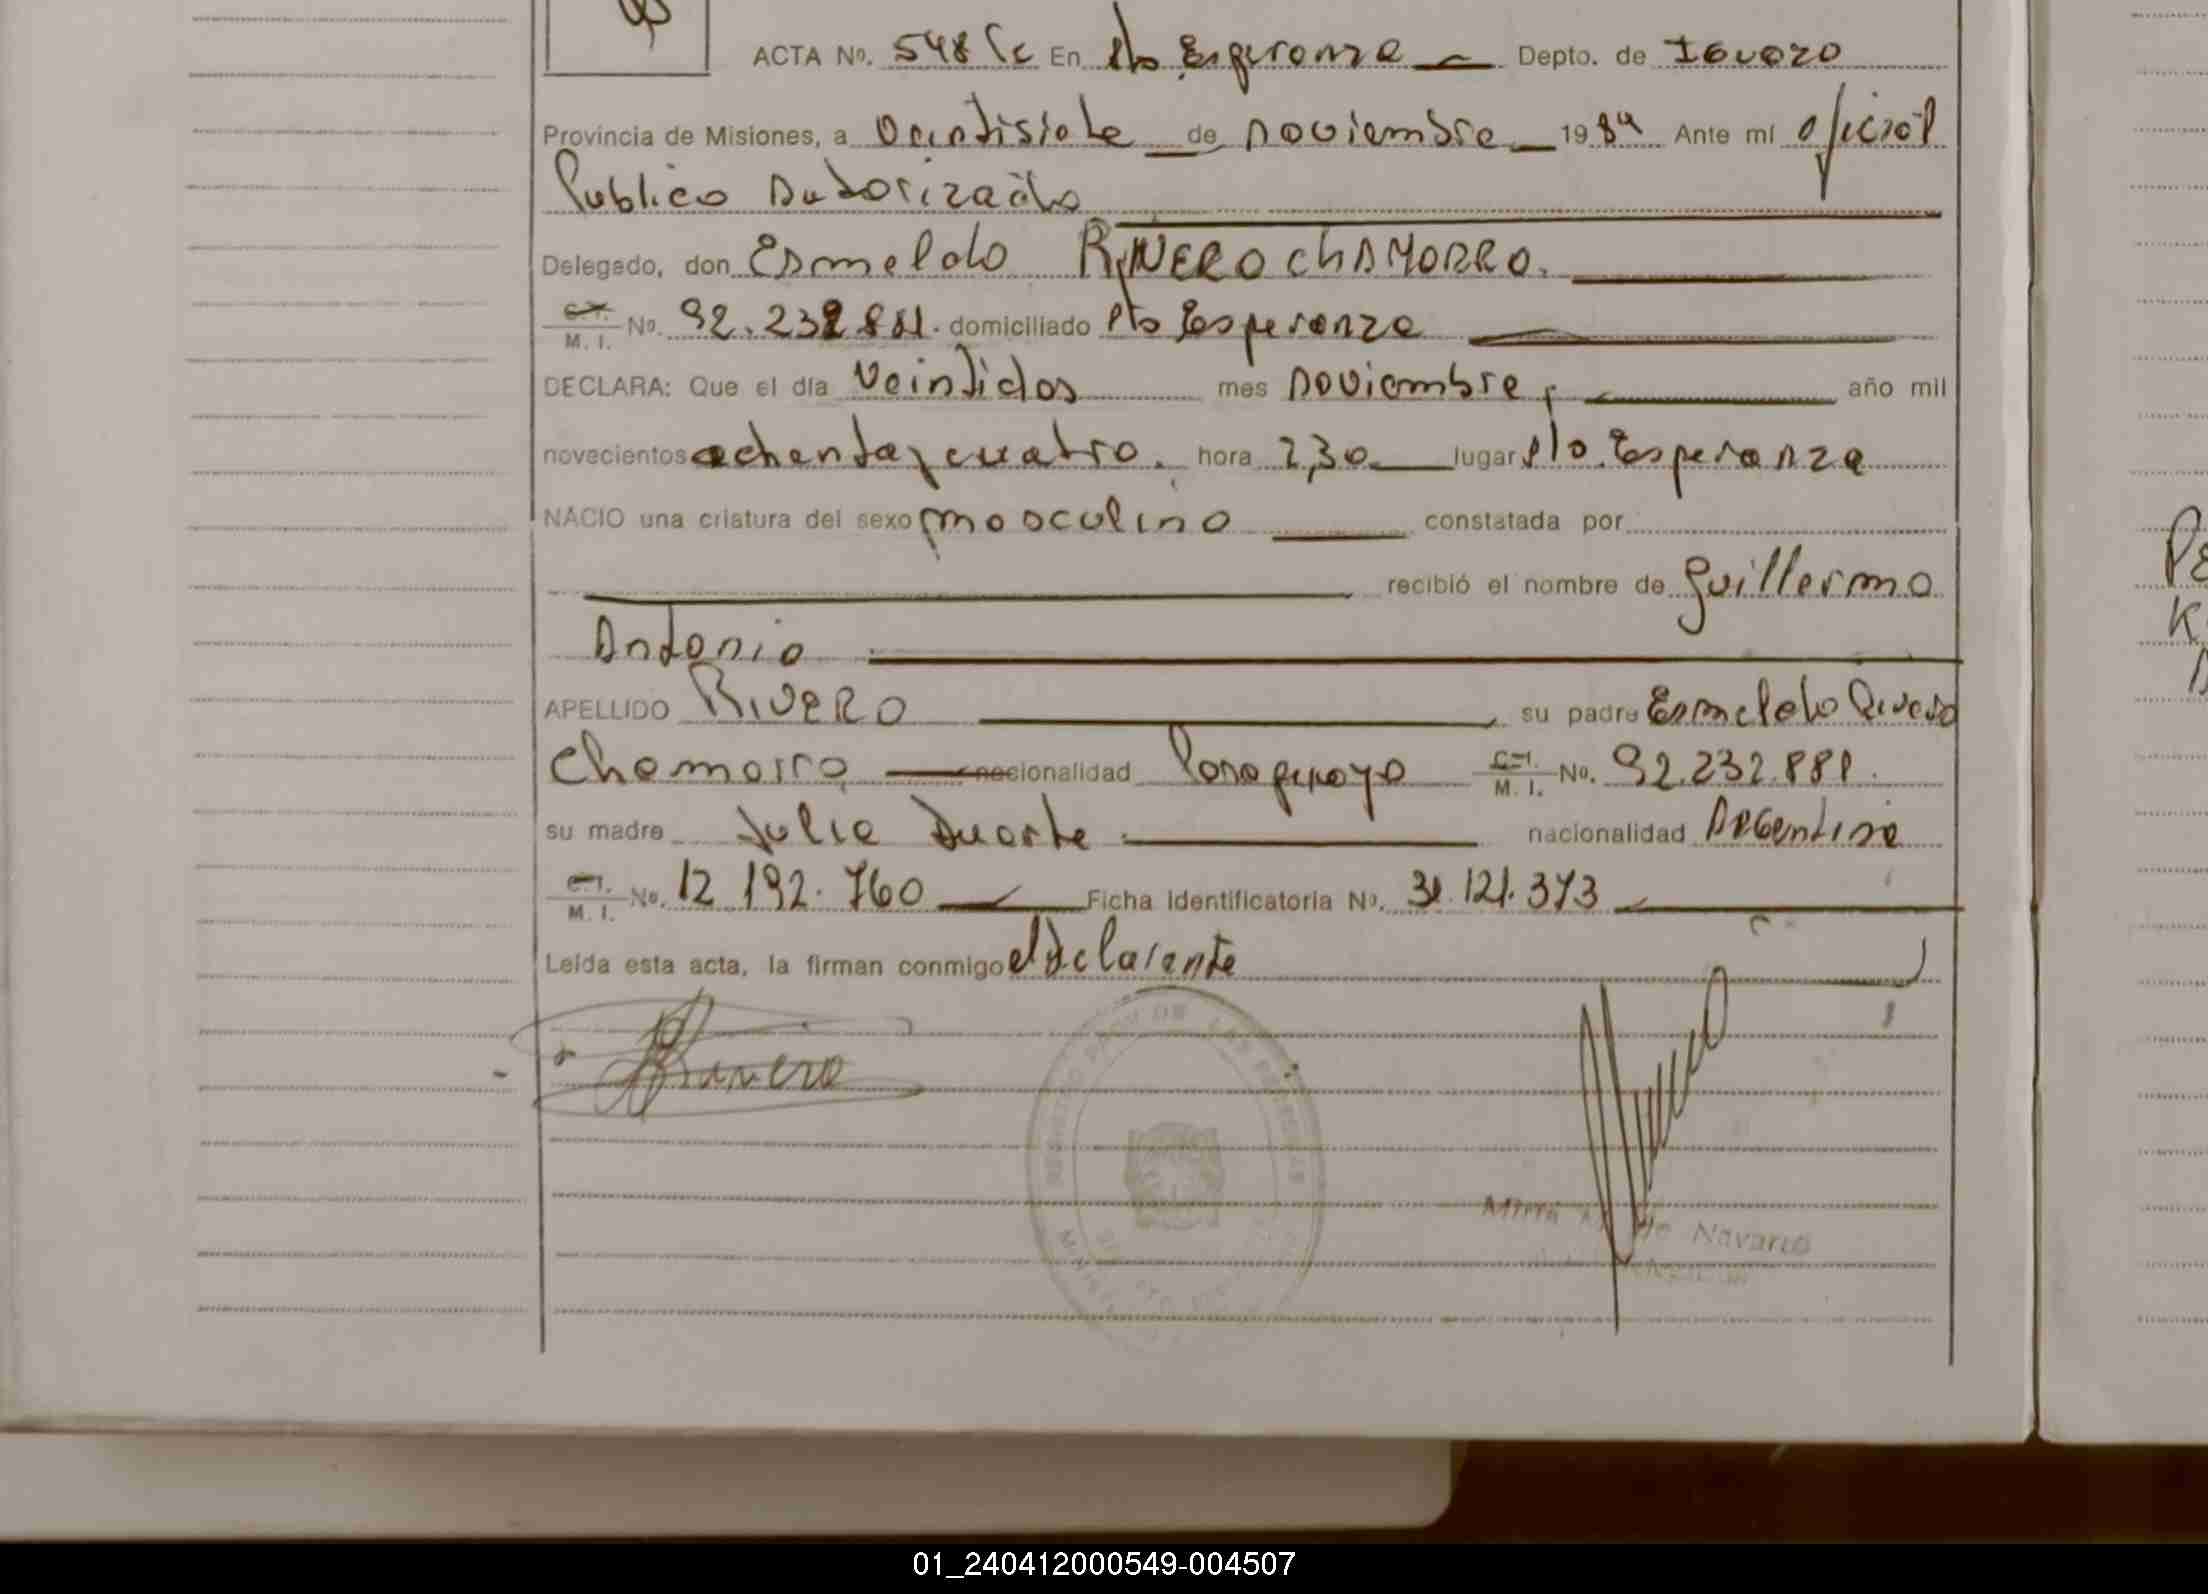 ACTA Nº. 548 Tc En Pto Esperanza Depto. de IGUAZU
Provincia de Misiones, a Veintisiete de noviembre 1984 Ante mí oficial
Publico Autorizado
Delegado, don Esmeldo RIVERO CHAMORRO.
C.I. M. I. Nº. 92.232.881. domiciliado Pto Esperanza
DECLARA: Que el día Veintidos mes noviembre, año mil
novecientos ochenta y cuatro. hora 2,30 lugar Pto. Esperanza
NACIO una criatura del sexo masculino constatada por
recibió el nombre de Guillermo
Antonio
APELLIDO RIVERO su padre Esmeldo Rivero
Chamorro nacionalidad Paraguaya C.I. M. I. Nº. 92.232.881.
su madre Julia Duarte nacionalidad Argentina
C.I. M. I. Nº. 12 192.760 Ficha Identificatoria Nº. 31.121.373
Leída esta acta, la firman conmigo el declarante
Rivero
Navarro
01_240412000549-004507